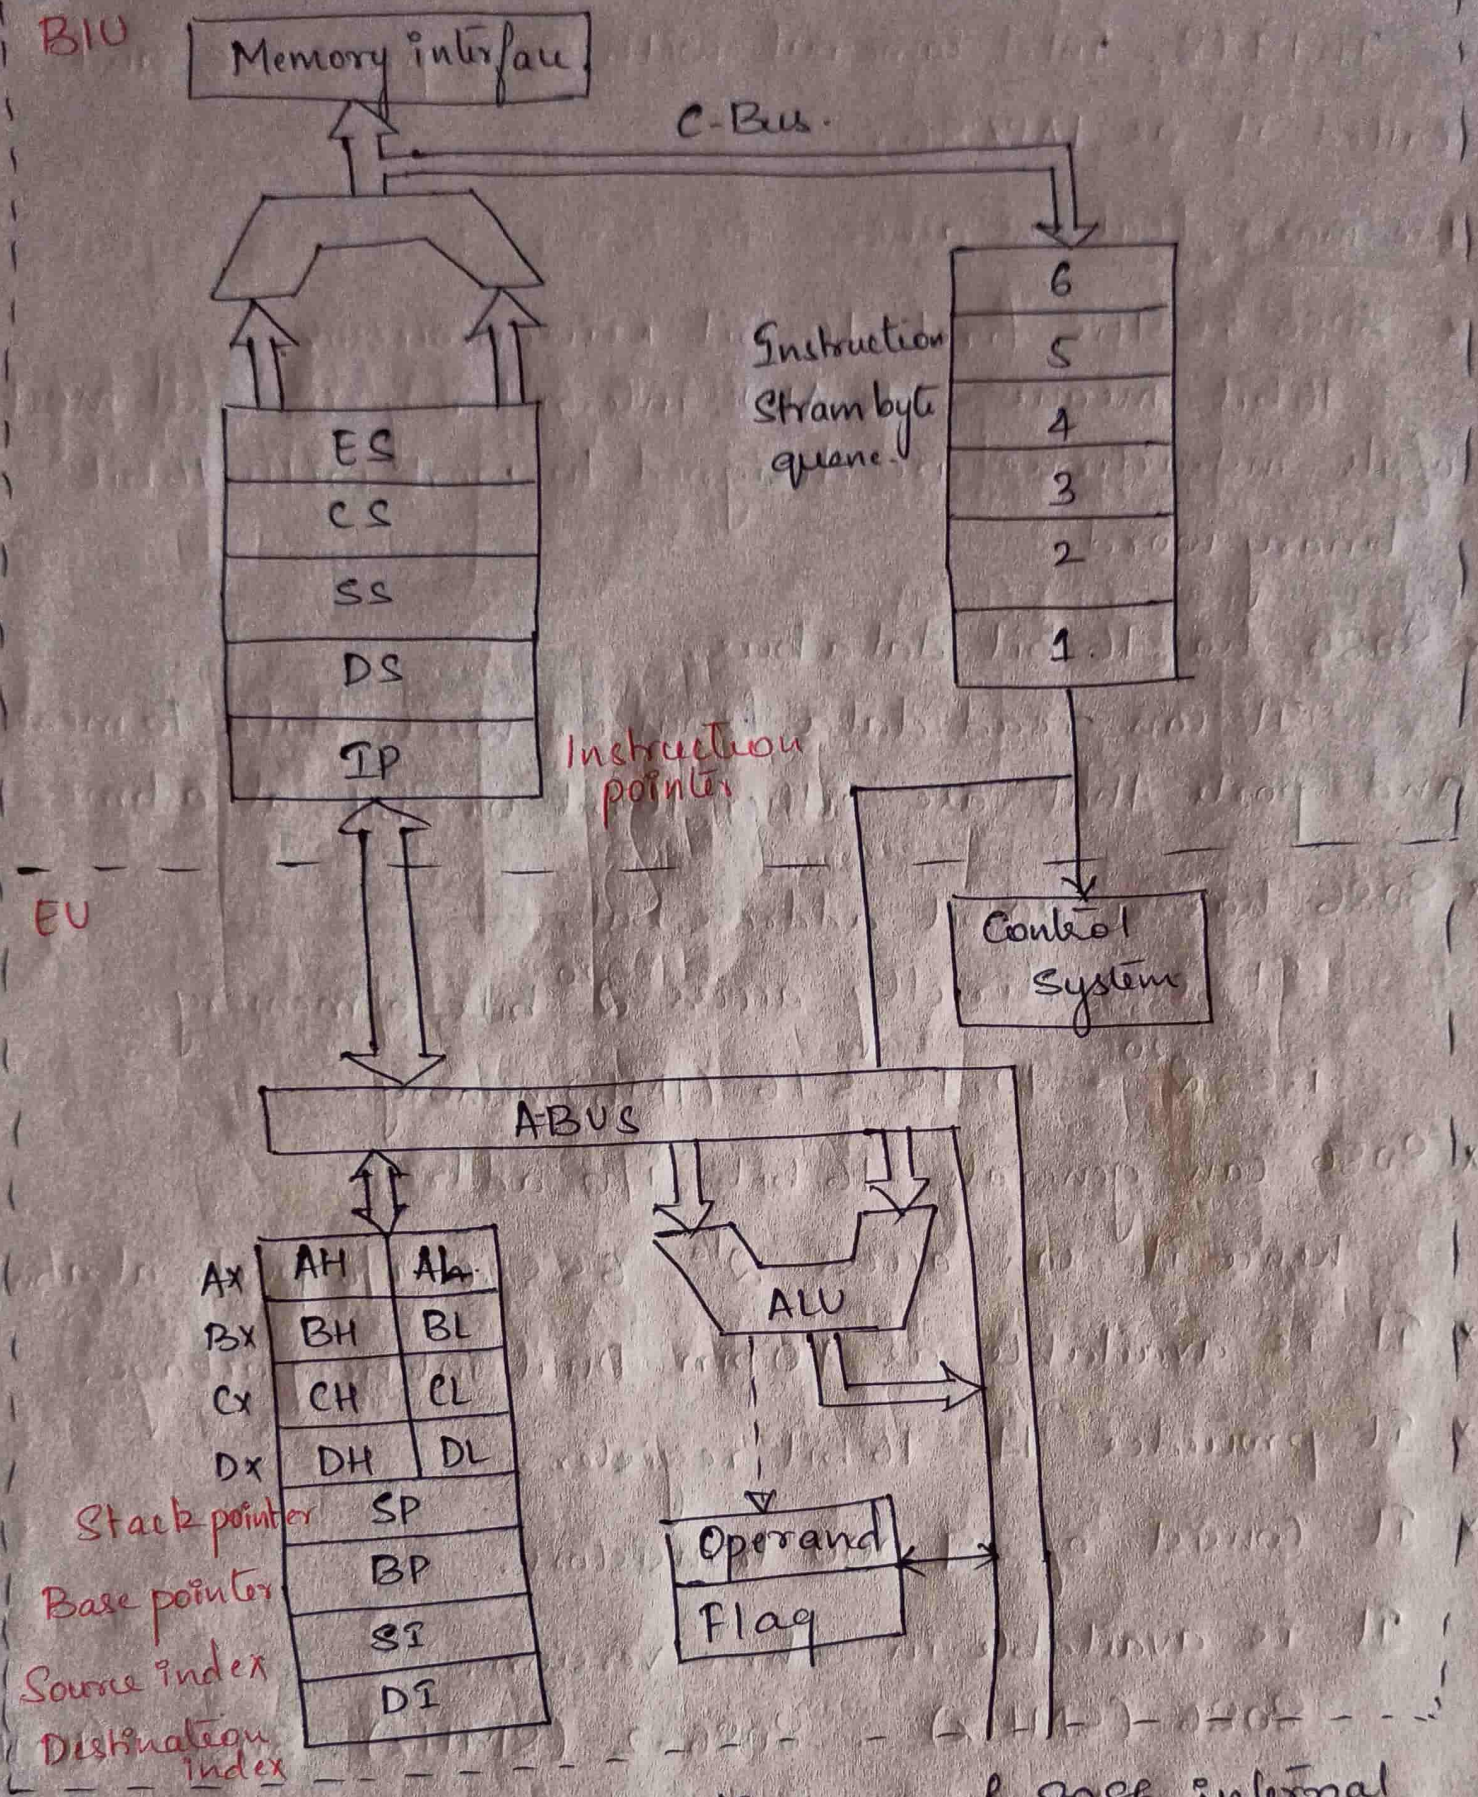 BIU
Memory interface
C-Bus.
6
5
4
3
2
1.
Instruction
Stram byte
queue.
ES
CS
SS
DS
IP
Instruction
pointer
EU
Control
System
A-BUS
AX AH AL
BX BH BL
CX CH CL
DX DH DL
Stack pointer SP
Base pointer BP
Source index SI
Destination
index
DI
ALU
Operand
Flag
internal